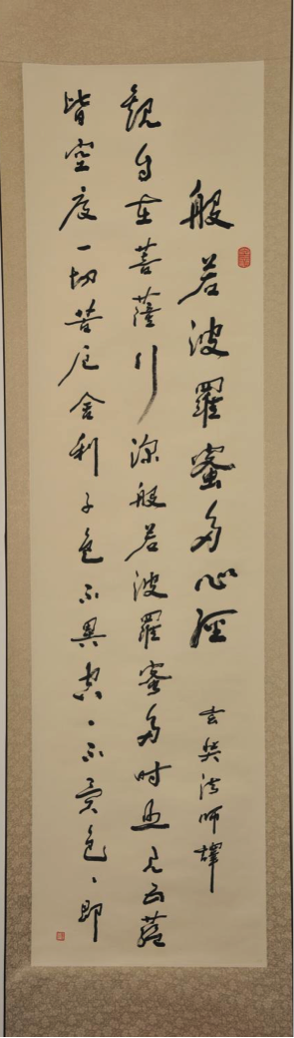 般若波羅蜜多心經 玄奘法師譯
觀自在菩薩行深般若波羅蜜多時照見五蘊
皆空度一切苦厄舍利子色不異空、不異色、即